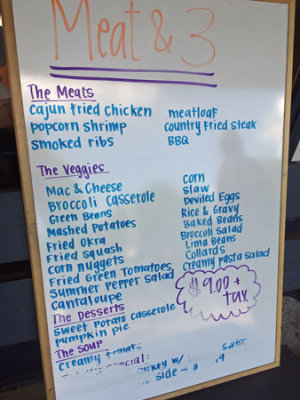 Meat & 3
The Meats
cajun fried chicken
popcorn shrimp
smoked ribs
meatloaf
country fried steak
BBQ
The Veggies
Mac & Cheese
Broccoli Casserole
Green Beans
Mashed Potatoes
Fried Okra
Fried Squash
Corn nuggets
Fried Green Tomatoes
Summer Pepper Salad
Cantaloupe
Corn
Slaw
Deviled Eggs
Rice & Gravy
Baked Beans
Broccoli Salad
Lima Beans
Collards
Creamy Pasta Salad
$9.00 +
tax
The Desserts
Sweet Potato Casserole
Pumpkin pie
The Soup
Creamy
w/
side